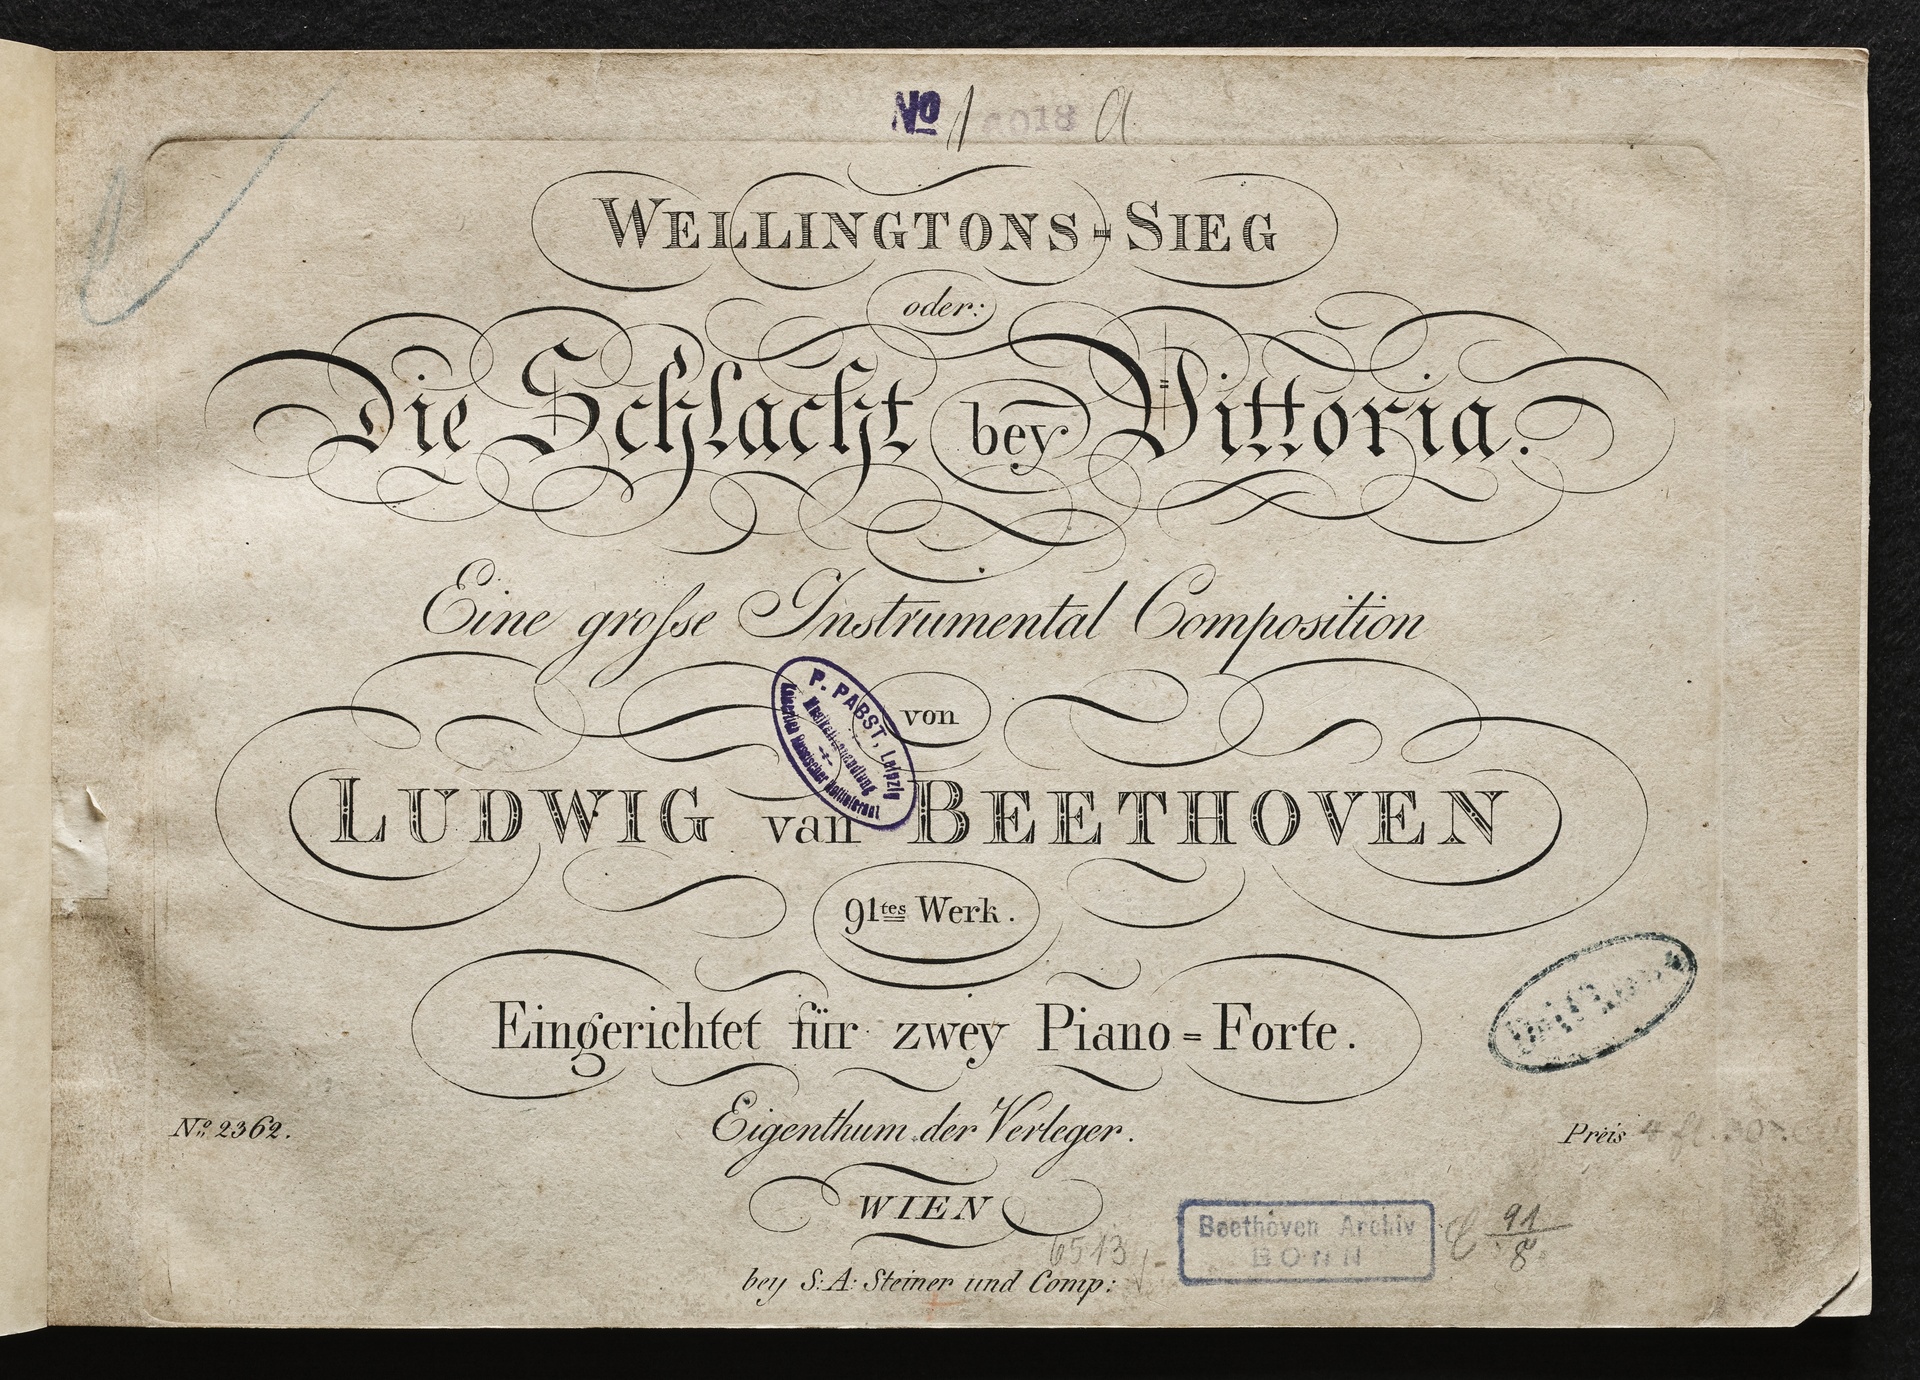 No 1 6018 a
WELLINGTONS=SIEG
oder:
Die Schlacht bey Vittoria.
Eine grosse Instrumental Composition
von
P. PABST, Leipzig
Musikalienhandlung
Kaiserlich Russischer Hoflieferant
LUDWIG van BEETHOVEN
91tes Werk.
Eingerichtet für zwey Piano=Forte.
No 2362.
Eigenthum der Verleger.
Preis 4 fl. 30
WIEN
6513
Beethoven Archiv
BONN
C 91/8
bey S: A: Steiner und Comp: